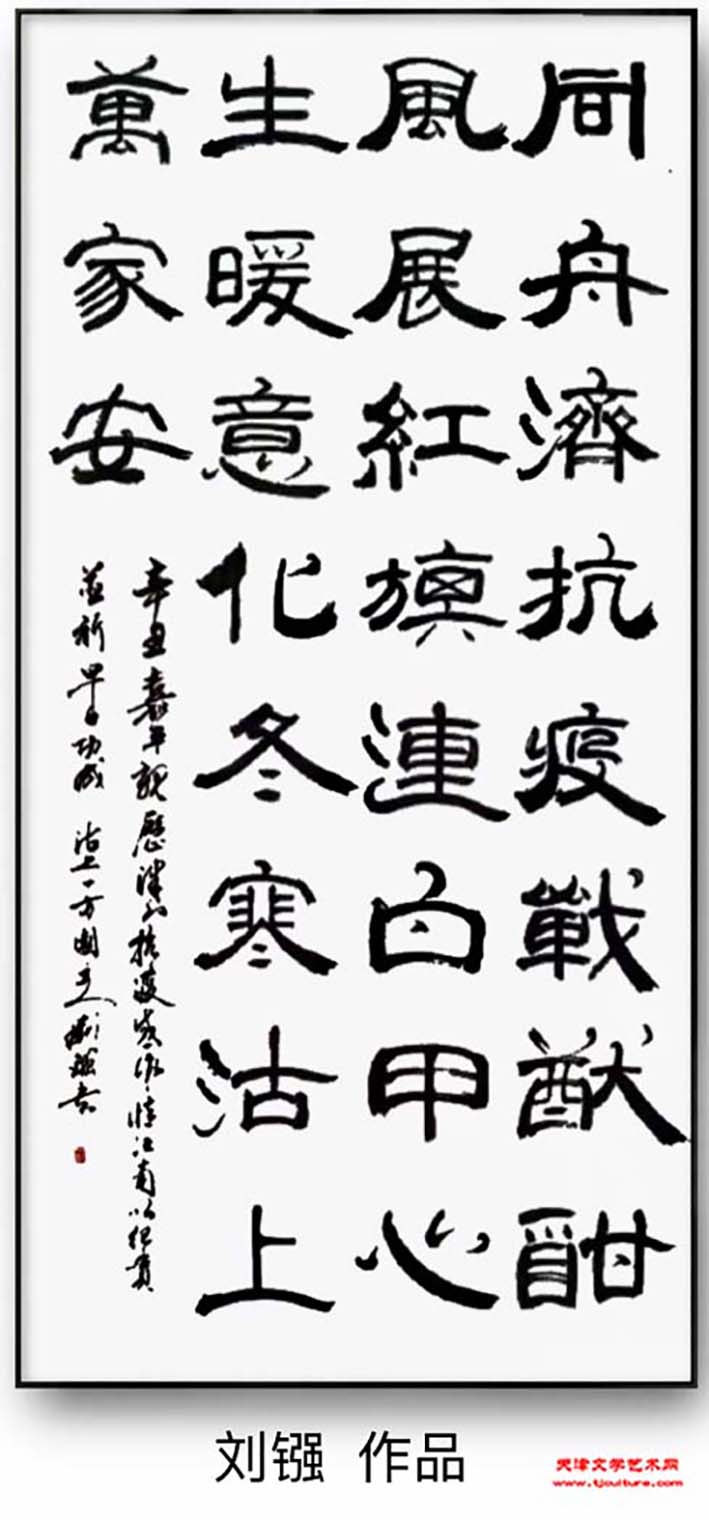 同舟濟抗疫戰猷酣
風展紅旗連白甲心
生暖意化冬寒沽上
萬家安
辛丑嘉平親歷津門抗疫感作憶江南以紀實
並祈早日功成 沽上一方園主人劉鏹書
刘镪 作品
天津文学艺术网
www.tjculture.com